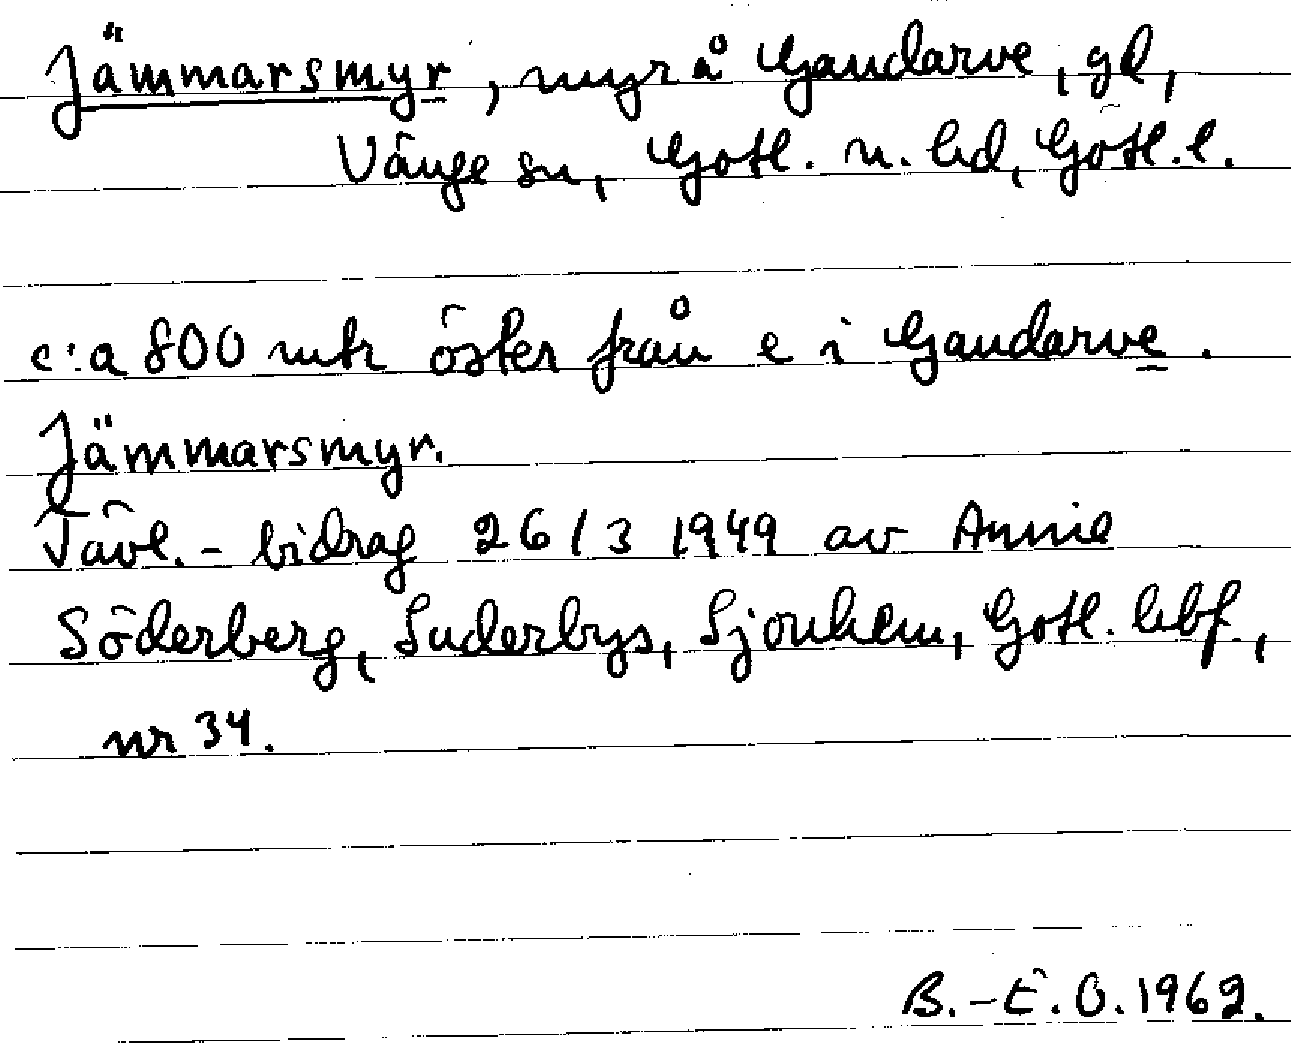 Jämmarsmyr, myr å Gandarve, gd,
Vänge sn, Gotl. n. hd, Gotl. l.
c:a 800 mtr öster från e i Gandarve.
Jämmarsmyr.
Tävl.-bidrag 26/3 1949 av Annie
Söderberg, Suderbys, Sjonhem, Gotl. hbf.,
nr 34.
B.-E.O. 1962.